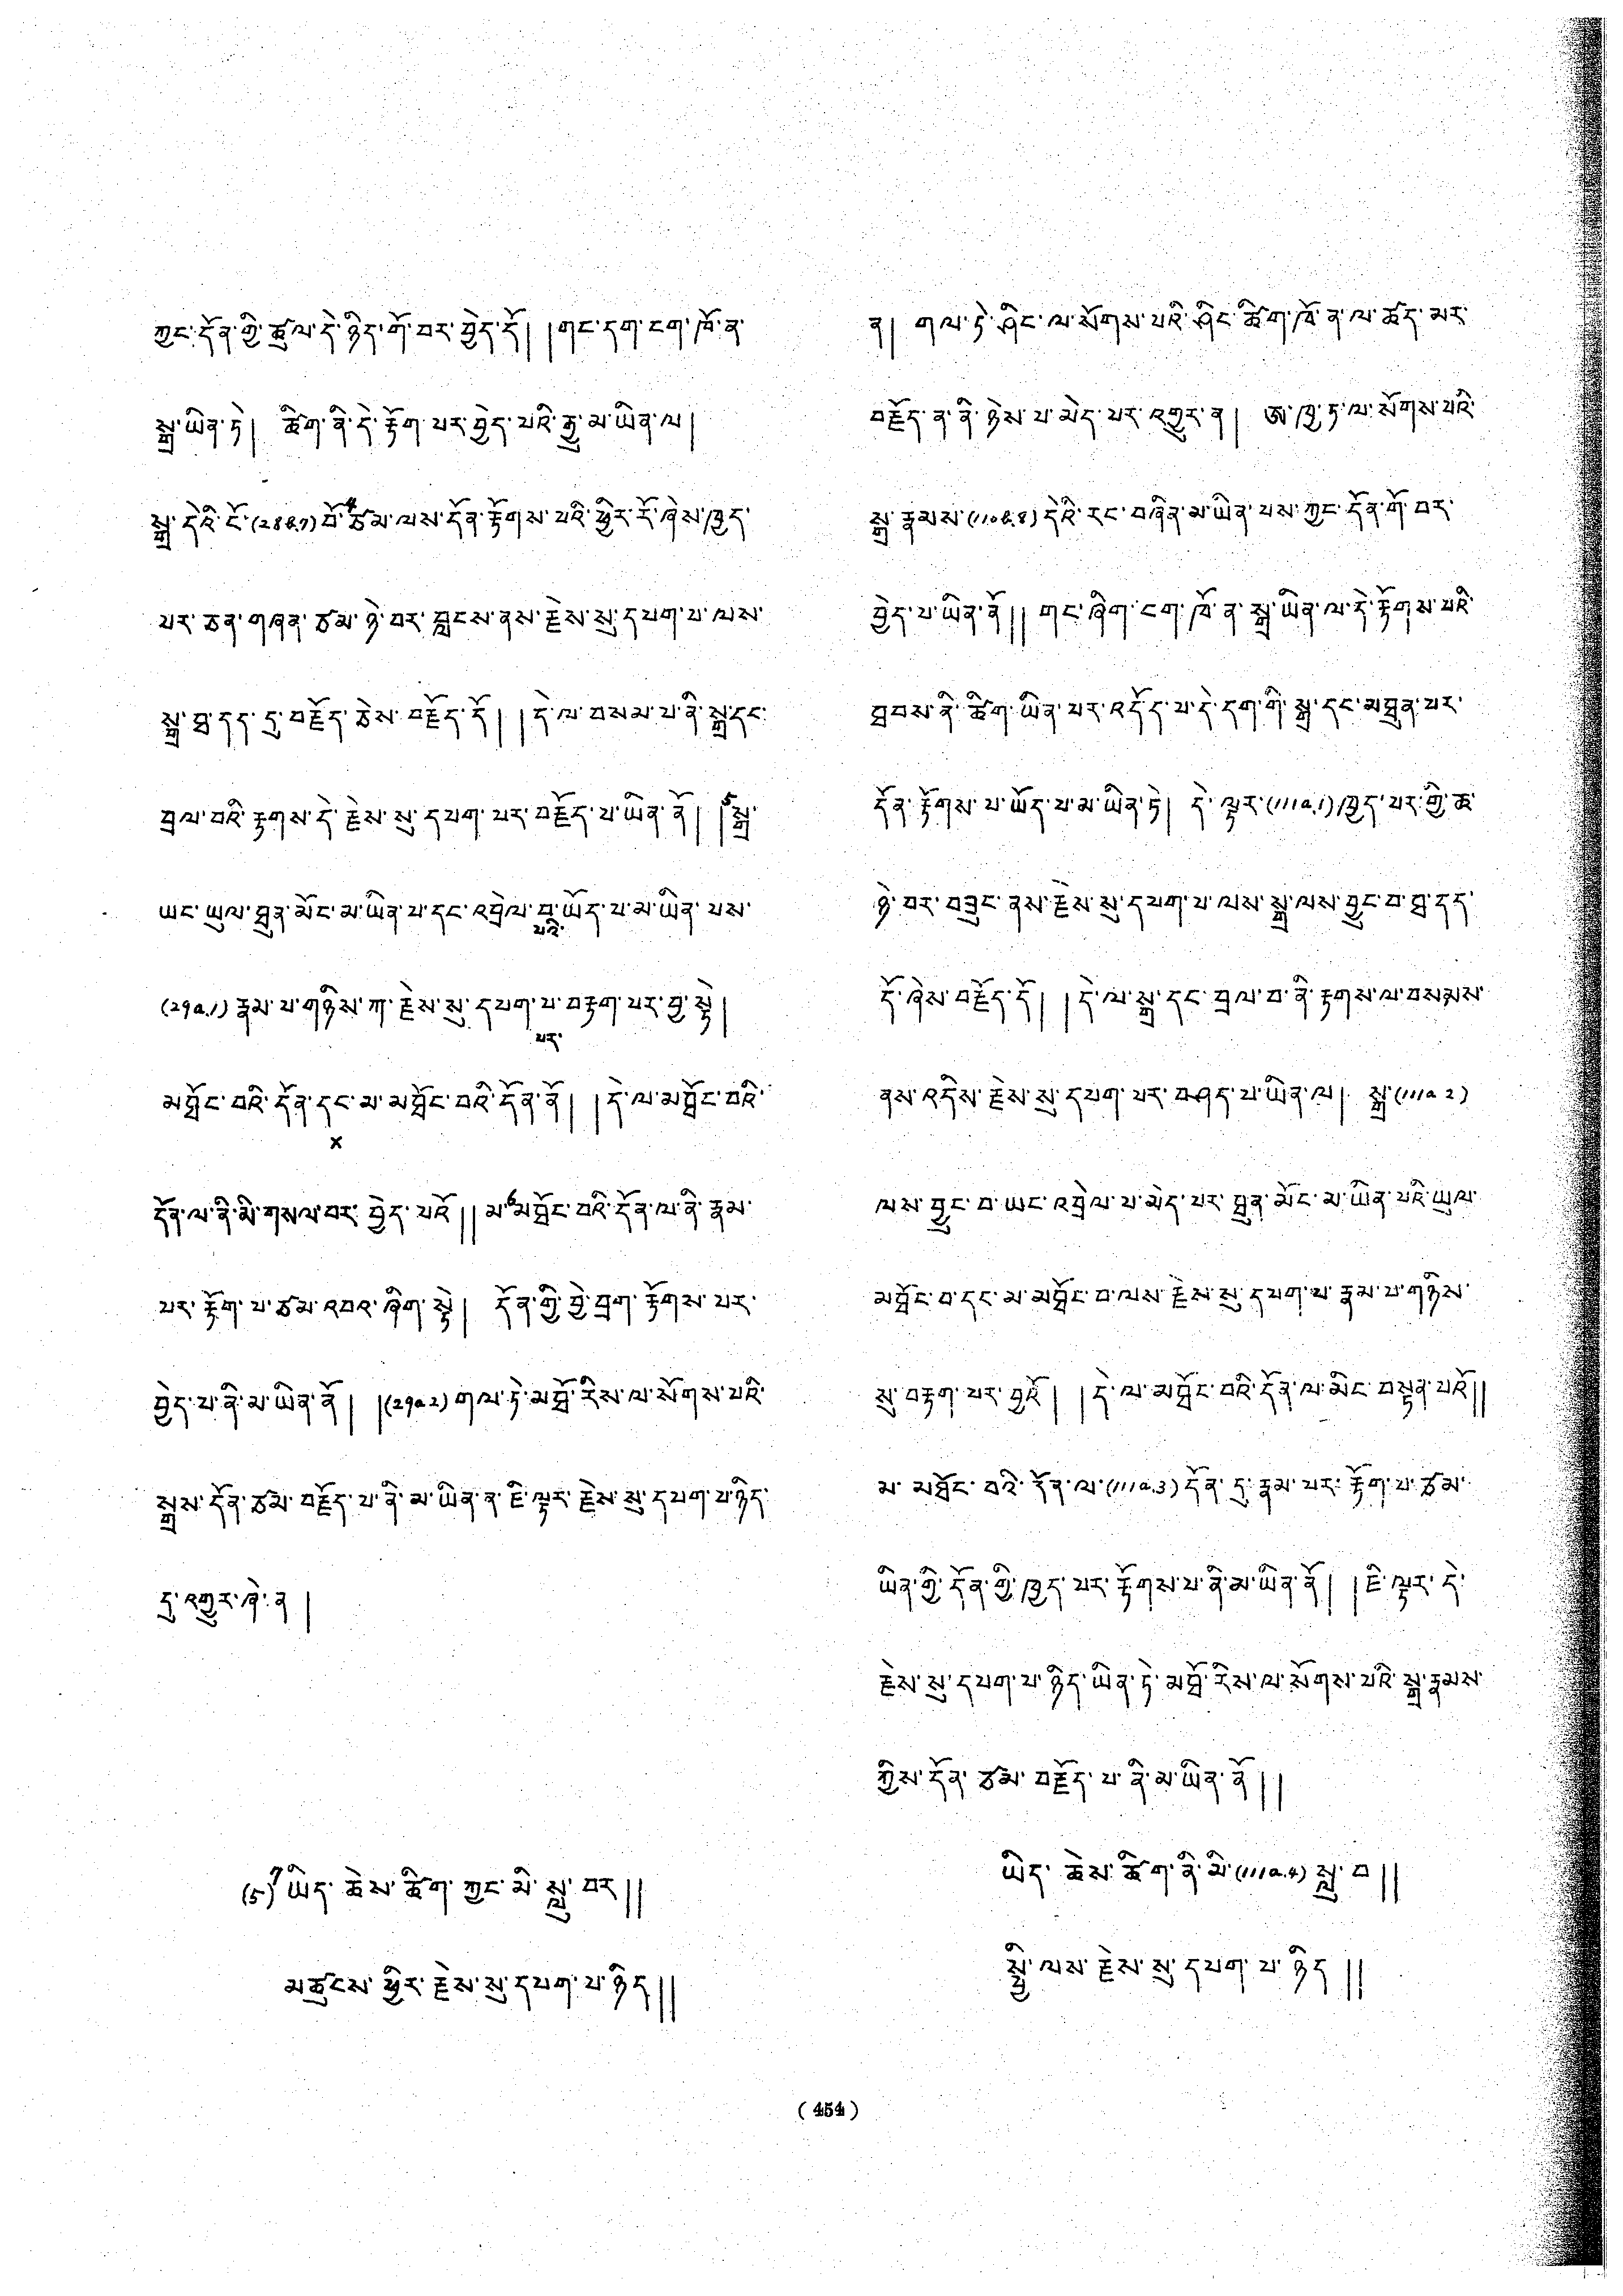 ཀྱང་དོན་གྱི་ཚུལ་དེ་ཉིད་གོ་བར་བྱེད་དོ། །གང་དག་ངག་ཁོ་ན་
སྒྲ་ཡིན་ཏེ། ཚིག་ནི་དེ་རྟོག་པར་བྱེད་པའི་རྒྱུ་མ་ཡིན་ལ།
སྒྲ་དེའི་ངོ་(28b.7)བོ་ཙམ་ལས་དོན་རྟོགས་པའི་ཕྱིར་རོ་ཞེས་ཁྱད་
པར་ཅན་གཞན་ཙམ་ཉེ་བར་བླངས་ནས་རྗེས་སུ་དཔག་པ་ལས་
སྒྲ་ཐ་དད་དུ་བརྗོད་ཅེས་བརྗོད་དོ། །དེ་ལ་བསམ་པ་ནི་སྒྲ་དང་
བྲལ་བའི་རྟགས་དེ་རྗེས་སུ་དཔག་པར་བརྗོད་པ་ཡིན་ནོ། །5སྒྲ་
ཡང་ཡུལ་ཐུན་མོང་མ་ཡིན་པ་དང་འབྲེལ་བ་ཡོད་པ་མ་ཡིན་པས་
པའི་
(29a.1)རྣམ་པ་གཉིས་ཀ་རྗེས་སུ་དཔག་པ་བརྟག་པར་བྱ་སྟེ།
པར་
མཐོང་བའི་དོན་དང་མ་མཐོང་བའི་དོན་ནོ། །དེ་ལ་མཐོང་བའི་
x
དོན་ལ་ནི་མི་གསལ་བར་བྱེད་པའོ།། མ་6མཐོང་བའི་དོན་ལ་ནི་རྣམ་
པར་རྟོག་པ་ཙམ་འབའ་ཞིག་སྟེ། དོན་གྱི་བྱེ་བྲག་རྟོགས་པར་
བྱེད་པ་ནི་མ་ཡིན་ནོ། །(29a2)གལ་ཏེ་མཐོ་རིས་ལ་སོགས་པའི་
སྒྲས་དོན་ཙམ་བརྗོད་པ་ནི་མ་ཡིན་ན་ཇི་ལྟར་རྗེས་སུ་དཔག་པ་ཉིད་
དུ་འགྱུར་ཞེ་ན།
(5)7ཡིད་ཆེས་ཚིག་ཀྱང་མི་སླུ་བར།།
མཚུངས་ཕྱིར་རྗེས་སུ་དཔག་པ་ཉིད།།
ན། གལ་ཏེ་ཤིང་ལ་སོགས་པའི་ཤིང་ཚིག་ཁོ་ན་ལ་ཚད་མར་
བརྗོད་ན་ནི་ཉེས་པ་མེད་པར་འགྱུར་ན། ཨ་ཁྱ་ཏ་ལ་སོགས་པའི་
སྒྲ་རྣམས་(110b.8)དེའི་རང་བཞིན་མ་ཡིན་པས་ཀྱང་དོན་གོ་བར་
བྱེད་པ་ཡིན་ནོ།། གང་ཞིག་ངག་ཁོ་ན་སྒྲ་ཡིན་ལ་དེ་རྟོགས་པའི་
ཐབས་ནི་ཚིག་ཡིན་པར་འདོད་པ་དེ་དག་གི་སྒྲ་དང་མཐུན་པར་
དོན་རྟོགས་པ་ཡོད་པ་མ་ཡིན་ཏེ། དེ་ལྟར་(111a.1)ཁྱད་པར་གྱི་ཆ་
ཉེ་བར་བཟུང་ནས་རྗེས་སུ་དཔག་པ་ལས་སྒྲ་ལས་བྱུང་བ་ཐ་དད་
དོ་ཞེས་བརྗོད་དོ། །དེ་ལ་སྒྲ་དང་བྲལ་བ་ནི་རྟགས་ལ་བསམས་
ནས་འདིས་རྗེས་སུ་དཔག་པར་བཤད་པ་ཡིན་ལ། སྒྲ་(111a 2)
ལས་བྱུང་བ་ཡང་འབྲེལ་པ་མེད་པར་ཐུན་མོང་མ་ཡིན་པའི་ཡུལ་
མཐོང་བ་དང་མ་མཐོང་བ་ལས་རྗེས་སུ་དཔག་པ་རྣམ་པ་གཉིས་
སུ་བརྟག་པར་བྱའོ། །དེ་ལ་མཐོང་བའི་དོན་ལ་མིང་བསྟན་པའོ།།
མ་མཐོང་བའི་དོན་ལ་(111a.3)དོན་དུ་རྣམ་པར་རྟོག་པ་ཙམ་
ཡིན་གྱི་དོན་གྱི་ཁྱད་པར་རྟོགས་པ་ནི་མ་ཡིན་ནོ། །ཇི་ལྟར་དེ་
རྗེས་སུ་དཔག་པ་ཉིད་ཡིན་ཏེ་མཐོ་རིས་ལ་སོགས་པའི་སྒྲ་རྣམས་
ཀྱིས་དོན་ཙམ་བརྗོད་པ་ནི་མ་ཡིན་ནོ།།
ཡིད་ཆེས་ཚིག་ནི་མི་(111a.4)སླུ་བ།།
སྤྱི་ལས་རྗེས་སུ་དཔག་པ་ཉིད།།
(454)